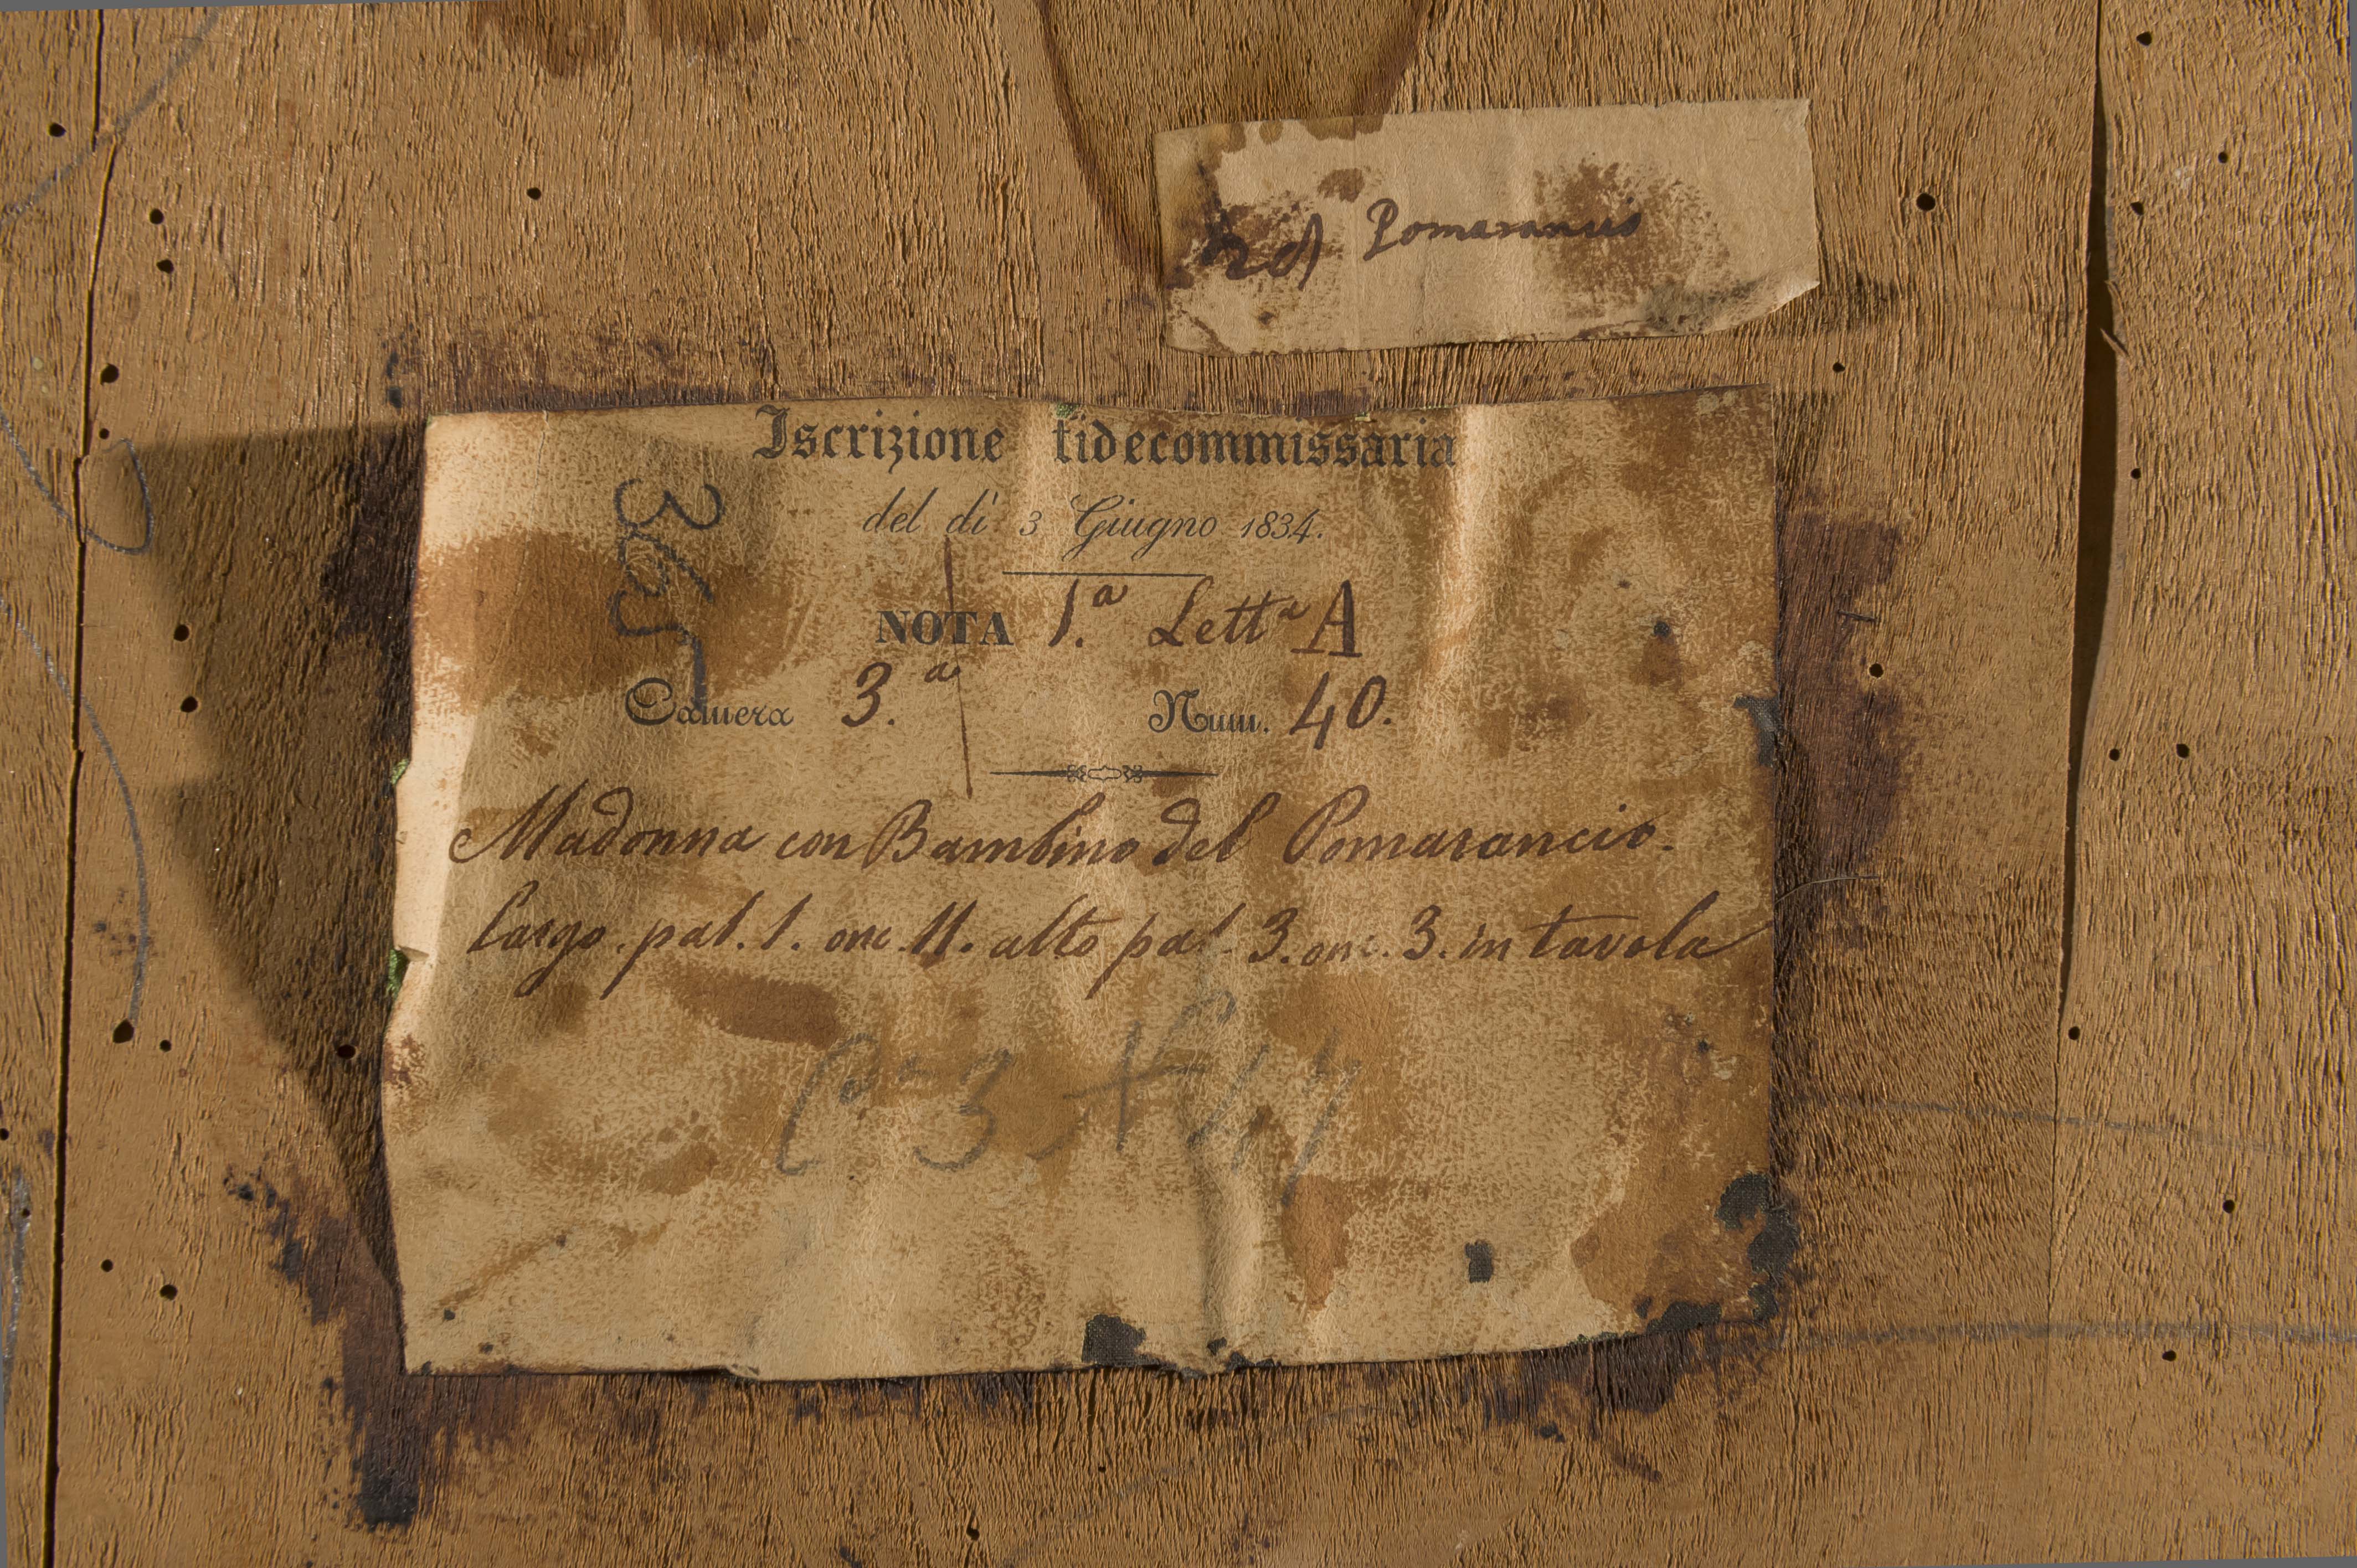 Pomarancio
Iscrizione fidecommissaria
del dì 3 Giugno 1834.
365
NOTA 1.ª Lettª A
Camera 3.ª Num. 40.
Madonna con Bambino del Pomarancio.
largo. pal. 1. onc. 11. alto pal. 3. onc. 3. in tavola